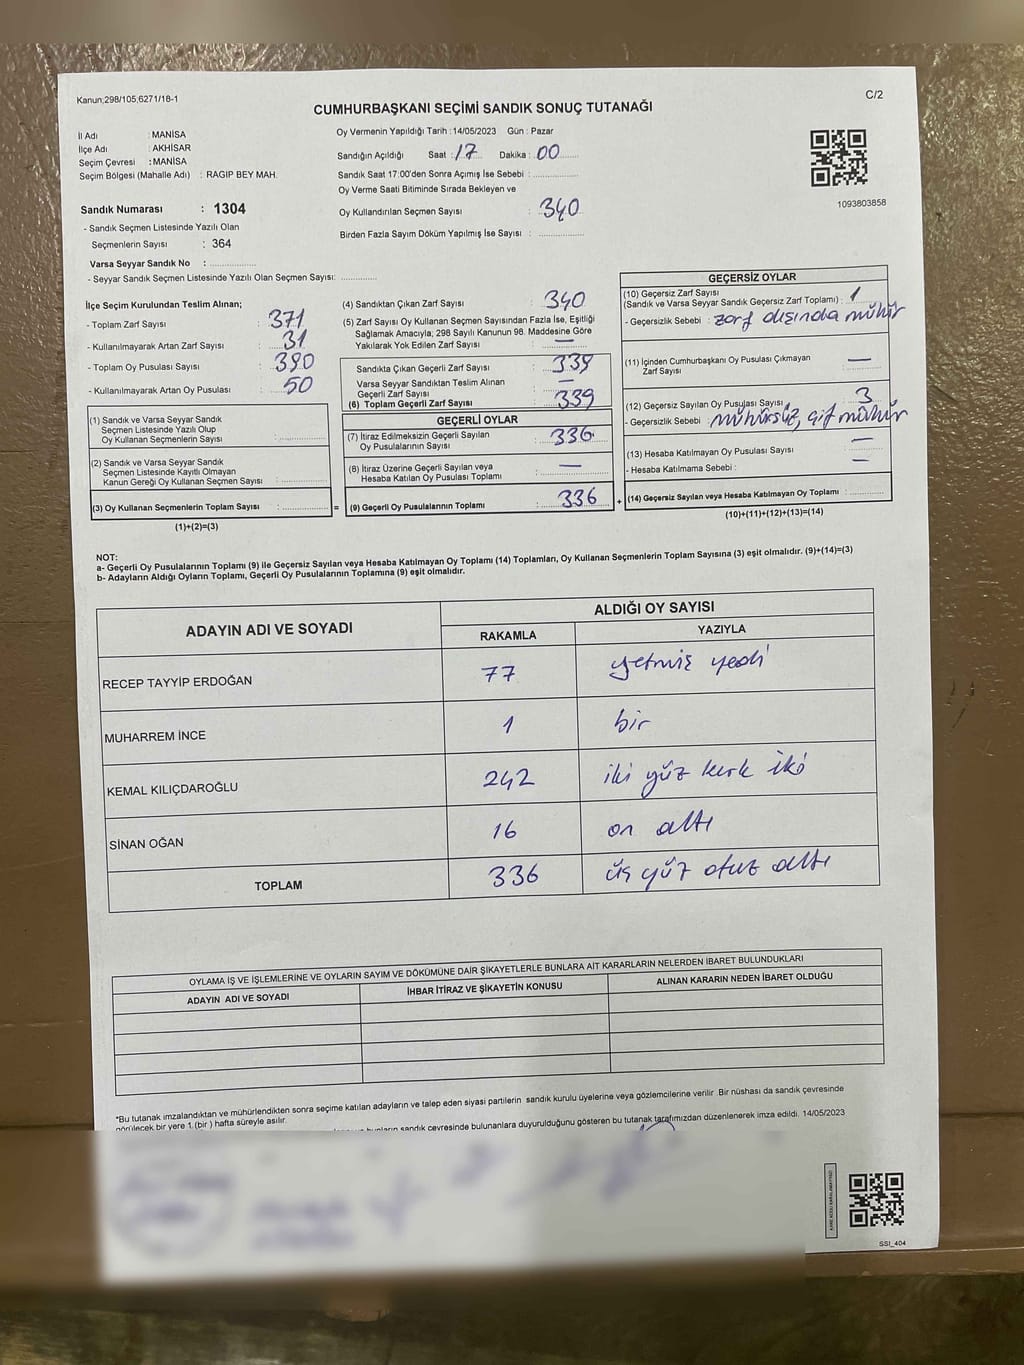 Kanun;298/105;6271/18-1
C/2
CUMHURBAŞKANI SEÇİMİ SANDIK SONUÇ TUTANAĞI
İl Adı : MANİSA
İlçe Adı : AKHİSAR
Seçim Çevresi : MANİSA
Seçim Bölgesi (Mahalle Adı) : RAGIP BEY MAH.
Sandık Numarası : 1304
- Sandık Seçmen Listesinde Yazılı Olan
Seçmenlerin Sayısı : 364
Varsa Seyyar Sandık No :
- Seyyar Sandık Seçmen Listesinde Yazılı Olan Seçmen Sayısı:
Oy Vermenin Yapıldığı Tarih : 14/05/2023 Gün : Pazar
Sandığın Açıldığı Saat : 17 Dakika : 00
Sandık Saat 17:00'den Sonra Açımış İse Sebebi :
Oy Verme Saati Bitiminde Sırada Bekleyen ve
Oy Kullandırılan Seçmen Sayısı : 340
Birden Fazla Sayım Döküm Yapılmış İse Sayısı :
1093803858
İlçe Seçim Kurulundan Teslim Alınan;
- Toplam Zarf Sayısı : 371
- Kullanılmayarak Artan Zarf Sayısı : 31
- Toplam Oy Pusulası Sayısı : 390
- Kullanılmayarak Artan Oy Pusulası : 50
(1) Sandık ve Varsa Seyyar Sandık
Seçmen Listesinde Yazılı Olup
Oy Kullanan Seçmenlerin Sayısı :
(2) Sandık ve Varsa Seyyar Sandık
Seçmen Listesinde Kayıtlı Olmayan
Kanun Gereği Oy Kullanan Seçmen Sayısı :
(3) Oy Kullanan Seçmenlerin Toplam Sayısı : =
(1)+(2)=(3)
(4) Sandıktan Çıkan Zarf Sayısı : 340
(5) Zarf Sayısı Oy Kullanan Seçmen Sayısından Fazla İse, Eşitliği
Sağlamak Amacıyla; 298 Sayılı Kanunun 98. Maddesine Göre
Yakılarak Yok Edilen Zarf Sayısı : —
Sandıkta Çıkan Geçerli Zarf Sayısı : 339
Varsa Seyyar Sandıktan Teslim Alınan
Geçerli Zarf Sayısı : —
(6) Toplam Geçerli Zarf Sayısı : 339
GEÇERLİ OYLAR
(7) İtiraz Edilmeksizin Geçerli Sayılan
Oy Pusulalarının Sayısı : 336
(8) İtiraz Üzerine Geçerli Sayılan veya
Hesaba Katılan Oy Pusulası Toplamı : —
(9) Geçerli Oy Pusulalarının Toplamı : 336 +
GEÇERSİZ OYLAR
(10) Geçersiz Zarf Sayısı
(Sandık ve Varsa Seyyar Sandık Geçersiz Zarf Toplamı) : 1
- Geçersizlik Sebebi : zarf dışında mühür
(11) İçinden Cumhurbaşkanı Oy Pusulası Çıkmayan
Zarf Sayısı : —
(12) Geçersiz Sayılan Oy Pusulası Sayısı : 3
- Geçersizlik Sebebi : mühürsüz, çift mühür
(13) Hesaba Katılmayan Oy Pusulası Sayısı : —
- Hesaba Katılmama Sebebi : —
(14) Geçersiz Sayılan veya Hesaba Katılmayan Oy Toplamı :
(10)+(11)+(12)+(13)=(14)
NOT:
a- Geçerli Oy Pusulalarının Toplamı (9) ile Geçersiz Sayılan veya Hesaba Katılmayan Oy Toplamı (14) Toplamları, Oy Kullanan Seçmenlerin Toplam Sayısına (3) eşit olmalıdır. (9)+(14)=(3)
b- Adayların Aldığı Oyların Toplamı, Geçerli Oy Pusulalarının Toplamına (9) eşit olmalıdır.
ADAYIN ADI VE SOYADI ALDIĞI OY SAYISI
RAKAMLA YAZIYLA
RECEP TAYYİP ERDOĞAN 77 yetmiş yedi
MUHARREM İNCE 1 bir
KEMAL KILIÇDAROĞLU 242 iki yüz kırk iki
SİNAN OĞAN 16 on altı
TOPLAM 336 üç yüz otuz altı
OYLAMA İŞ VE İŞLEMLERİNE VE OYLARIN SAYIM VE DÖKÜMÜNE DAİR ŞİKAYETLERLE BUNLARA AİT KARARLARIN NELERDEN İBARET BULUNDUKLARI
ADAYIN ADI VE SOYADI İHBAR İTİRAZ VE ŞİKAYETİN KONUSU ALINAN KARARIN NEDEN İBARET OLDUĞU
*Bu tutanak imzalandıktan ve mühürlendikten sonra seçime katılan adayların ve talep eden siyasi partilerin sandık kurulu üyelerine veya gözlemcilerine verilir. Bir nüshası da sandık çevresinde
görülecek bir yere 1 (bir ) hafta süreyle asılır.
bunların sandık çevresinde bulunanlara duyurulduğunu gösteren bu tutanak tarafımızdan düzenlenerek imza edildi. 14/05/2023
SSI_404